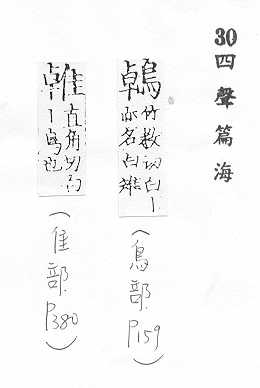 30 四聲篇海
鵫
竹教切白丨
亦名白雉
(鳥部 P159)
直角切
丨鳥也
(隹部 P380)